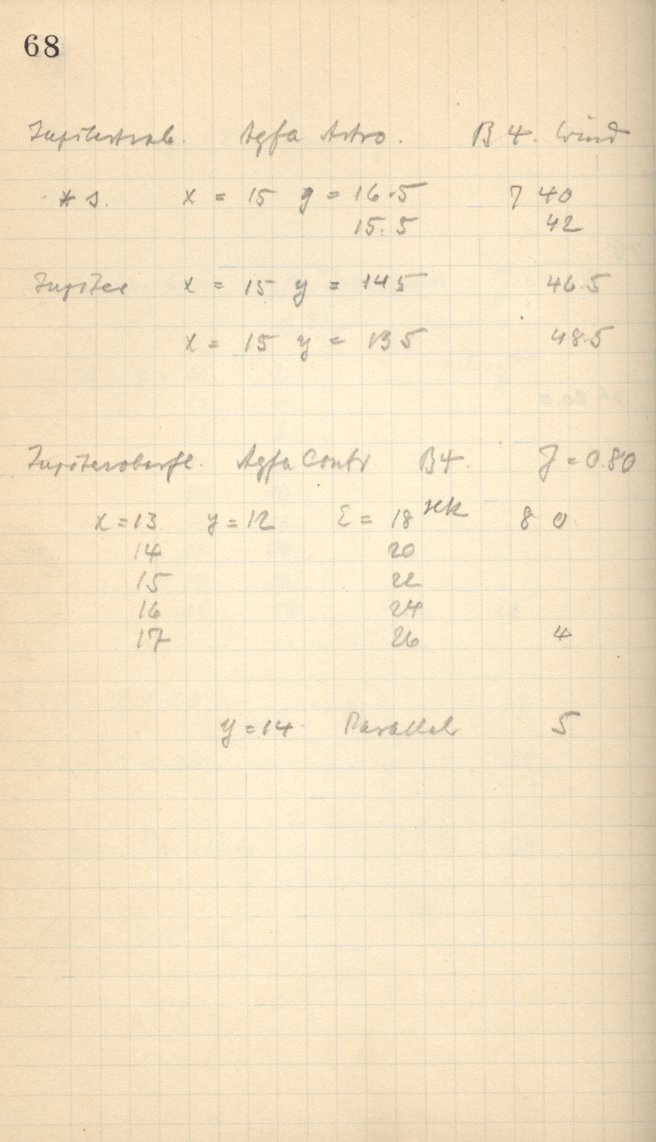 68
Jupitertrab. Agfa Astro. B 4. Wind
* s. x = 15 y = 16.5 7 40
15.5 42
Jupiter x = 15 y = 14.5 46.5
x = 15 y = 13.5 48.5
Jupiteroberfl. Agfa Contr B4. J = 0.80
x = 13 y = 12 Σ = 18 8 0
14 20
15 22
16 24
17 26 4
y = 14 Parallel 5